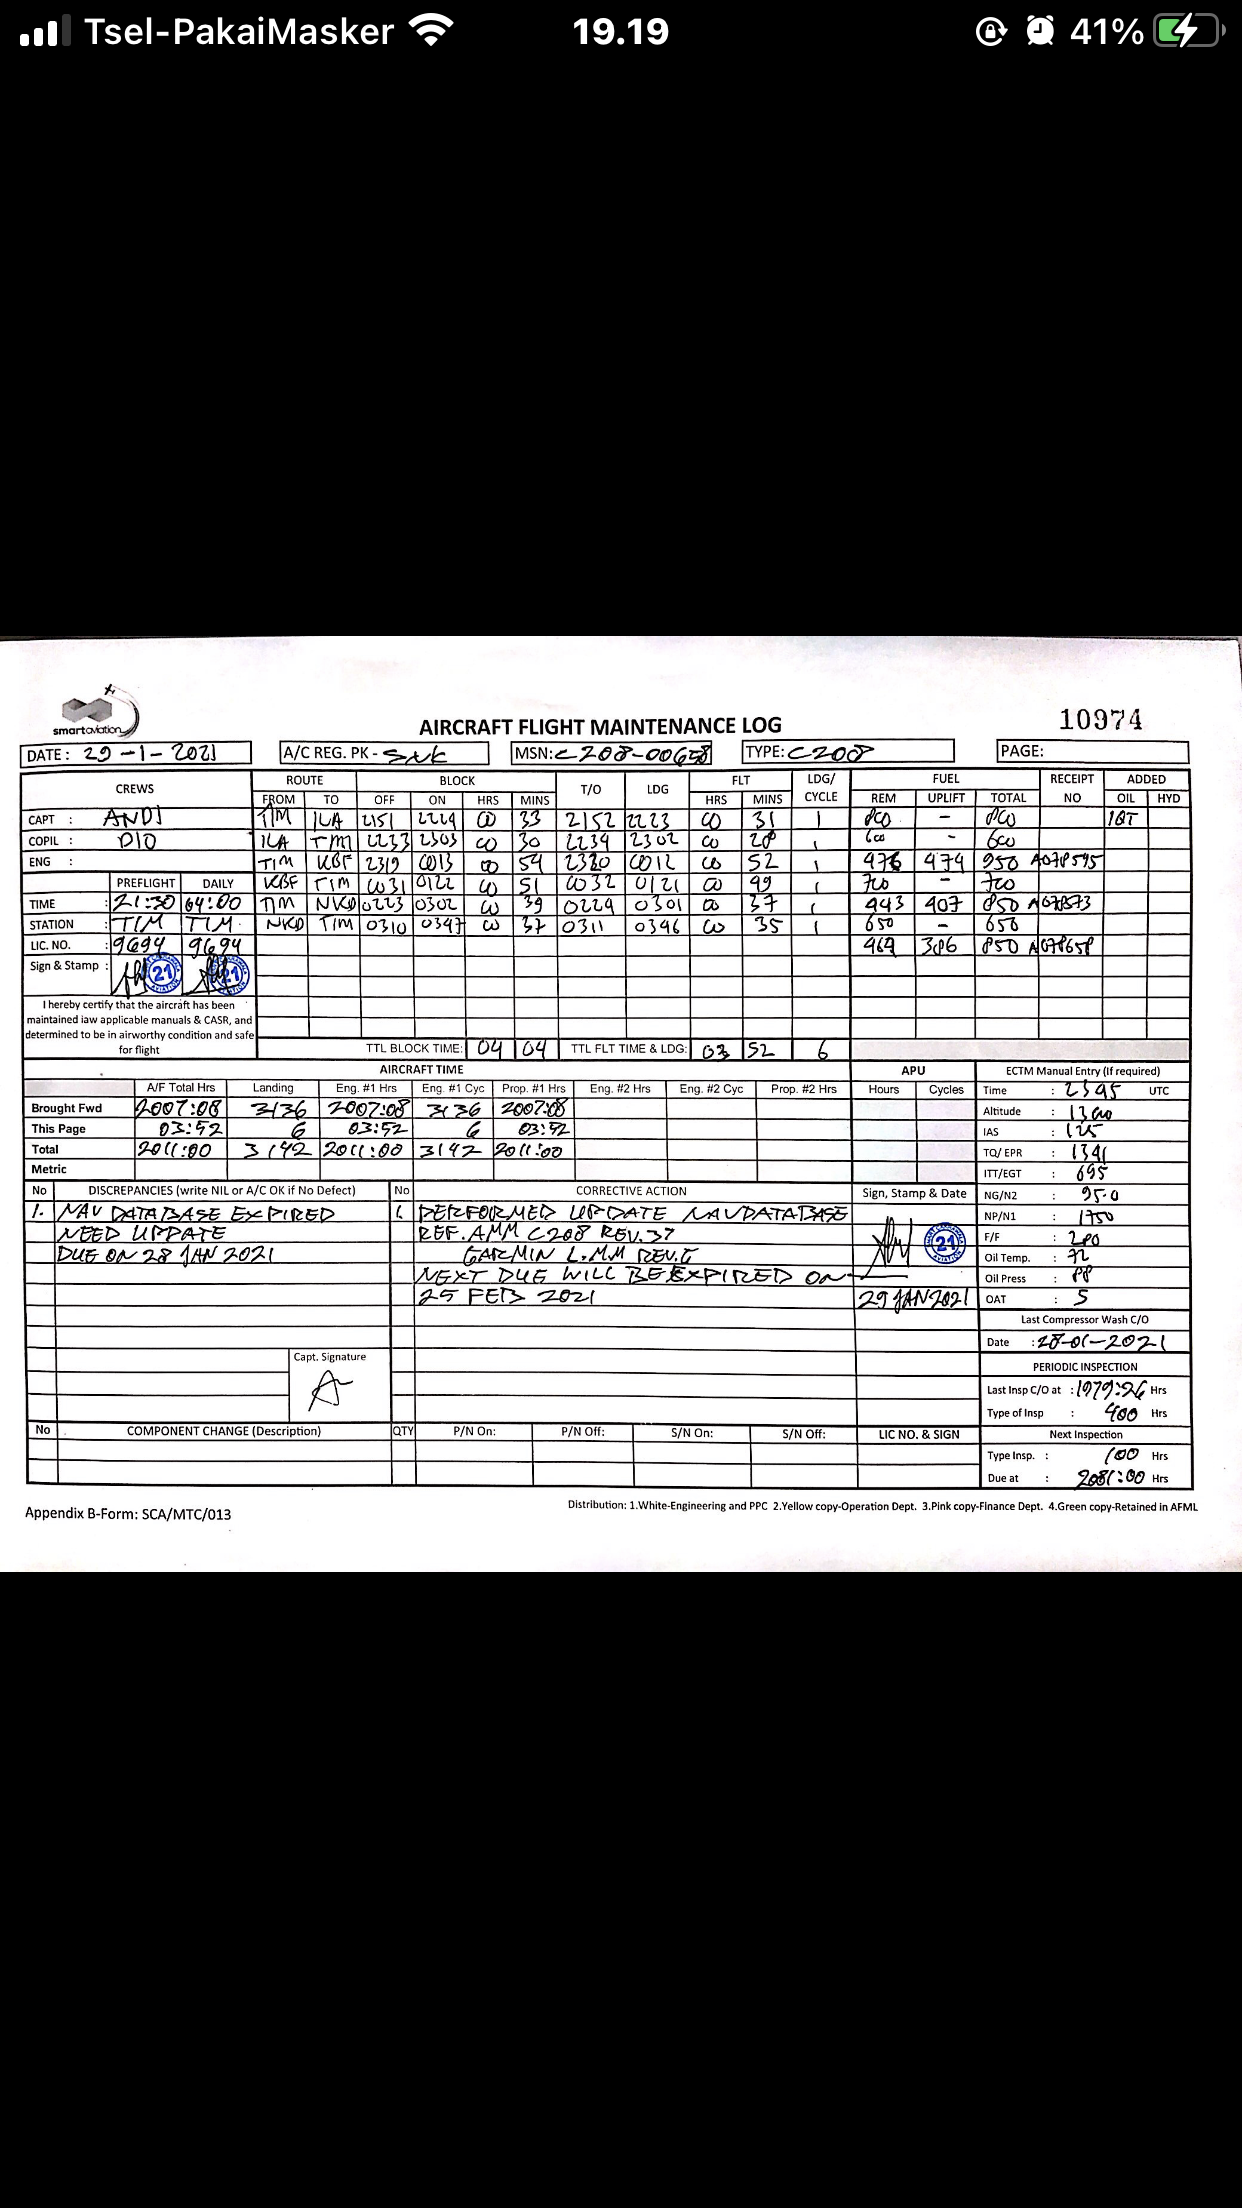 Tsel-PakaiMasker 19.19 41%
smartaviation
AIRCRAFT FLIGHT MAINTENANCE LOG 10974
DATE: 29-1-2021 A/C REG. PK - SNK MSN: C208-00658 TYPE: C208 PAGE:
CREWS ROUTE BLOCK T/O LDG FLT LDG/CYCLE FUEL RECEIPT NO ADDED
FROM TO OFF ON HRS MINS HRS MINS REM UPLIFT TOTAL OIL HYD
CAPT : ANDI TIM ILA 2151 2224 00 33 2152 2223 00 31 1 800 - 800 1QT
COPIL : DIO ILA TIM 2233 2303 00 30 2234 2302 00 28 1 600 - 600
ENG : TIM KBF 2319 0013 00 54 2320 0012 00 52 1 476 474 950 A078595
PREFLIGHT DAILY KBF TIM 0031 0122 00 51 0032 0121 00 49 1 700 - 700
TIME : 21:30 04:00 TIM NKD 0223 0302 00 39 0224 0301 00 37 1 443 407 850
STATION : TIM TIM NKD TIM 0310 0347 00 37 0311 0346 00 35 1 650 - 650
LIC. NO. : 9694 9694 464 386 850 A078658
Sign & Stamp : 21 21
I hereby certify that the aircraft has been
maintained iaw applicable manuals & CASR, and
determined to be in airworthy condition and safe
for flight
TTL BLOCK TIME: 04 04 TTL FLT TIME & LDG: 03 52 6
AIRCRAFT TIME APU ECTM Manual Entry (If required)
A/F Total Hrs Landing Eng. #1 Hrs Eng. #1 Cyc Prop. #1 Hrs Eng. #2 Hrs Eng. #2 Cyc Prop. #2 Hrs Hours Cycles Time : 2345 UTC
Brought Fwd 2007:08 3136 2007:08 3136 2007:08 Altitude :
This Page 03:52 6 03:52 6 03:52 IAS : 125
Total 2011:00 3142 2011:00 3142 2011:00 TQ/ EPR : 1341
Metric ITT/EGT : 695
No DISCREPANCIES (write NIL or A/C OK if No Defect) No CORRECTIVE ACTION Sign, Stamp & Date NG/N2 : 95.0
1. NAV DATABASE EXPIRED 1. PERFORMED UPDATE NAVDATABASE NP/N1 : 1750
NEED UPDATE REF. AMM C208 REV.37 21 F/F : 280
DUE ON 28 JAN 2021 GARMIN L.M.M REV.G Oil Temp. : 72
NEXT DUE WILL BE EXPIRED ON Oil Press : 88
25 FEB 2021 29 JAN 2021 OAT : 5
Last Compressor Wash C/O
Date : 28-01-2021
Capt. Signature PERIODIC INSPECTION
Last Insp C/O at : 1979:26 Hrs
Type of Insp : 400 Hrs
No COMPONENT CHANGE (Description) QTY P/N On: P/N Off: S/N On: S/N Off: LIC NO. & SIGN Next Inspection
Type Insp. : 100 Hrs
Due at : 2081:00 Hrs
Appendix B-Form: SCA/MTC/013 Distribution: 1.White-Engineering and PPC 2.Yellow copy-Operation Dept. 3.Pink copy-Finance Dept. 4.Green copy-Retained in AFML